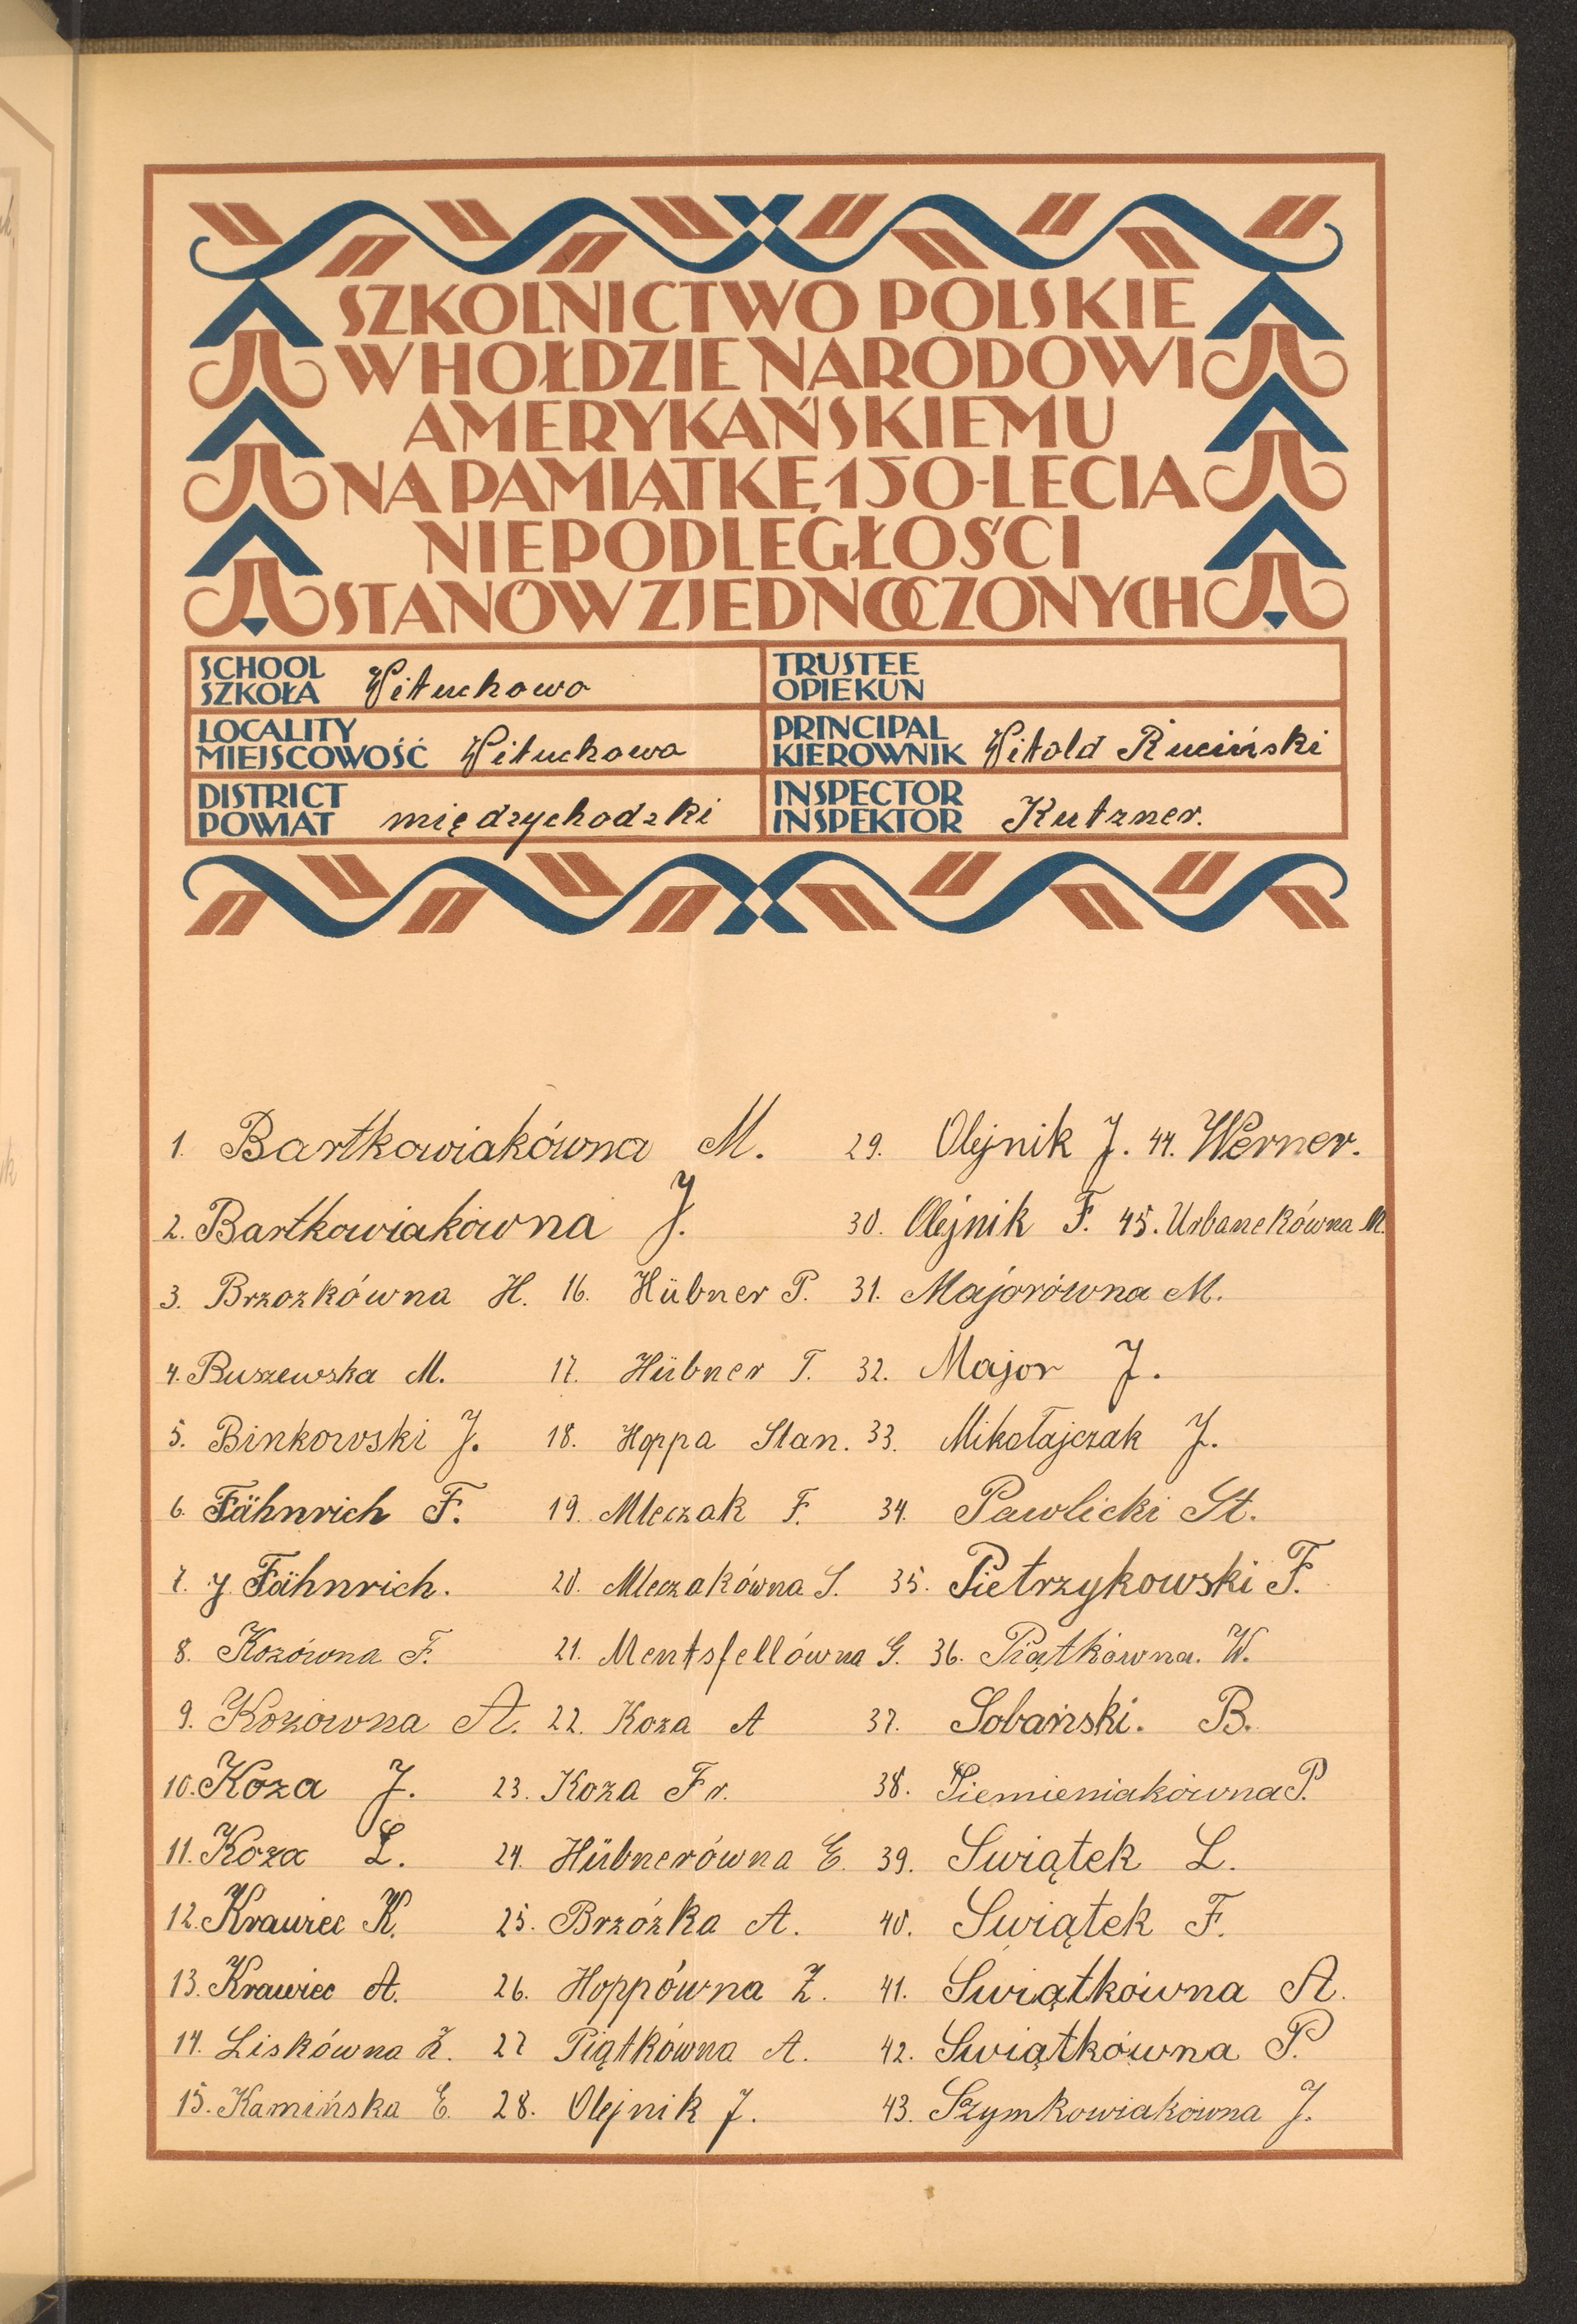 SZKOLNICTWO POLSKIE
W HOŁDZIE NARODOWI
AMERYKAŃSKIEMU
NA PAMIĄTKĘ 150-LECIA
NIEPODLEGŁOŚCI
STANÓW ZJEDNOCZONYCH
SCHOOL
SZKOŁA Wituchowo
TRUSTEE
OPIEKUN
LOCALITY
MIEJSCOWOŚĆ Wituchowo
PRINCIPAL
KIEROWNIK Witold Ruciński
DISTRICT
POWIAT międzychodzki
INSPECTOR
INSPEKTOR Kutzner.
1. Bartkowiakówna M.
2. Bartkowiakówna J.
3. Brzozkówna H.
4. Buszewska M.
5. Binkowski J.
6. Fähnrich F.
7. J. Fähnrich.
8. Kozówna F.
9. Kozówna A.
10. Koza J.
11. Koza L.
12. Krawiec K.
13. Krawiec A.
14. Liskówna Z.
15. Kamińska E.
16. Hübner P.
17. Hübner T.
18. Hoppa Stan.
19. Mleczak F.
20. Mleczakówna S.
21. Mentsfellówna G.
22. Koza A
23. Koza Fr.
24. Hübnerówna E.
25. Brzózka A.
26. Hoppówna Z.
27 Piątkówna A.
28. Olejnik J.
29. Olejnik J.
30. Olejnik F.
31. Majorówna M.
32. Major J.
33. Mikołajczak J.
34. Pawlicki St.
35. Pietrzykowski F.
36. Piątkówna. W.
37. Sobański. B.
38. Siemieniakówna P.
39. Swiątek L.
40. Swiątek F.
41. Swiątkówna A.
42. Swiątkówna P.
43. Szymkowiakówna J.
44. Werner.
45. Urbanekówna M.